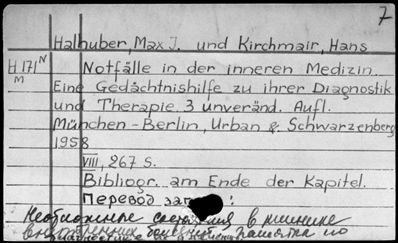 7
Halhuber, Max J. und Kirchmair, Hans
H 171 N
M
Notfälle in der inneren Medizin.
Eine Gedächtnishilfe zu ihrer Diagnostik
und Therapie. 3 unveränd. Aufl.
München-Berlin, Urban & Schwarzenberg
1958
VIII, 267 S.
Bibliogr. am Ende der Kapitel.
Перевод :
в клинике
внутренних болезней. Памятка по